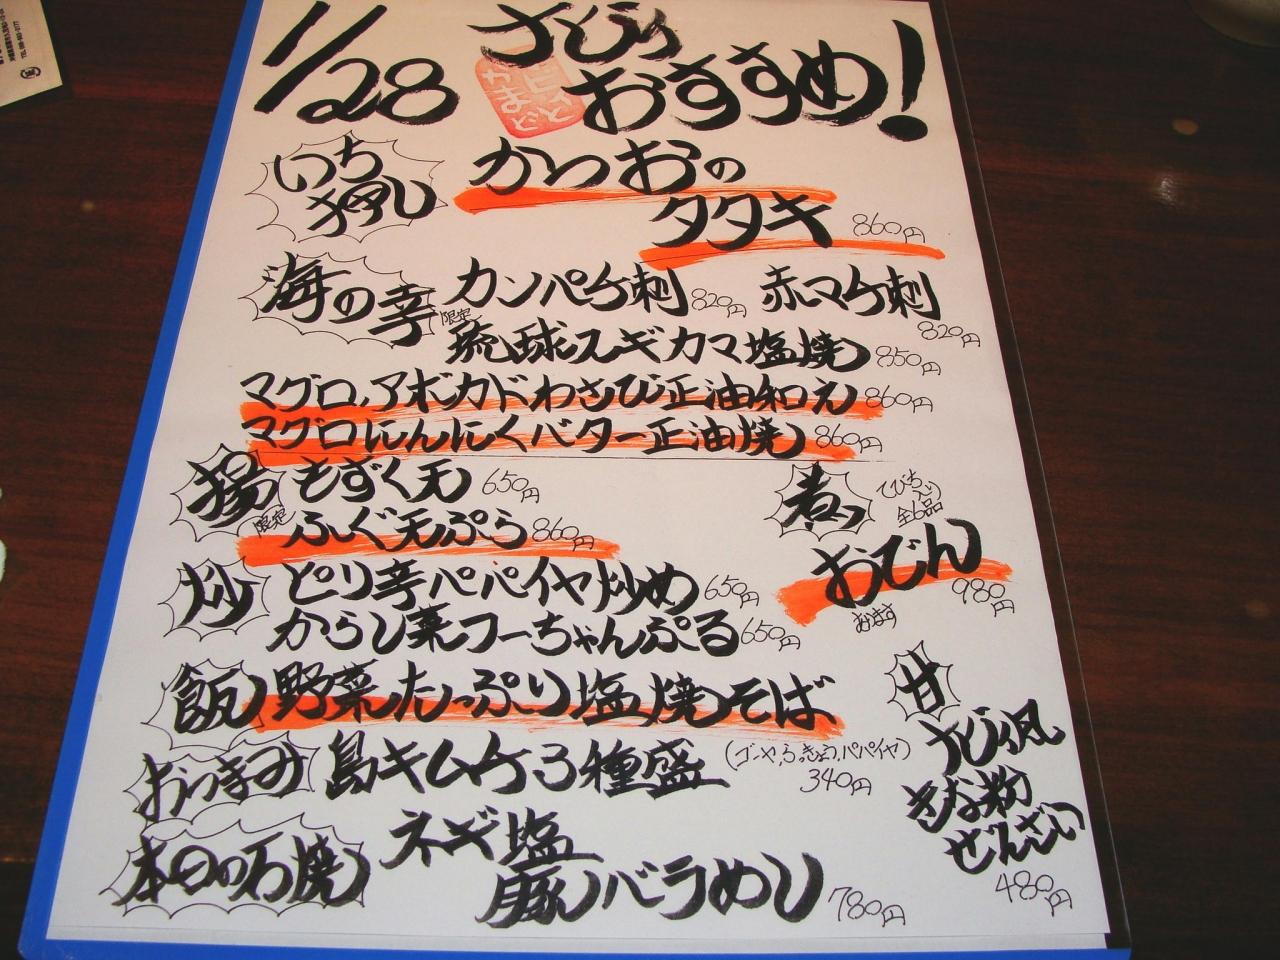 1/28
おすすめ!
いち
押し
かつおの
タタキ 860円
海の幸
カンパチ刺 820円
赤マチ刺
820円
限定
琉球スギカマ塩焼 850円
マグロ、アボカドわさび正油和え 860円
マグロにんにくバター正油焼 860円
揚 もずく天 650円
限定
ふぐ天ぷら 860円
煮
てびち入り
全6品
おでん
980円
炒 ピリ辛パパイヤ炒め 650円
からし菜フーちゃんぷる 650円
飯 野菜たっぷり塩焼そば
おつまみ 島キムチ3種盛 (ゴーヤ、らっきょう、パパイヤ)
340円
本日の石焼
ネギ塩
豚バラめし 780円
甘
きな粉
ぜんざい
480円